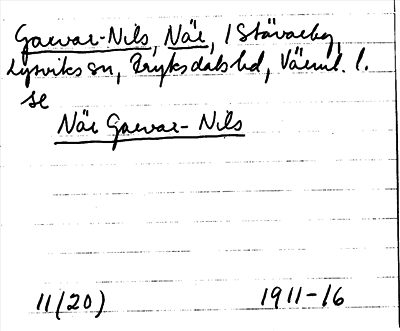 Garvar-Nils, När, i Stävarby,
Lysviks sn, Fryksdals hd, Värml. l.
se
När Garvar-Nils
11(20) 1911-16